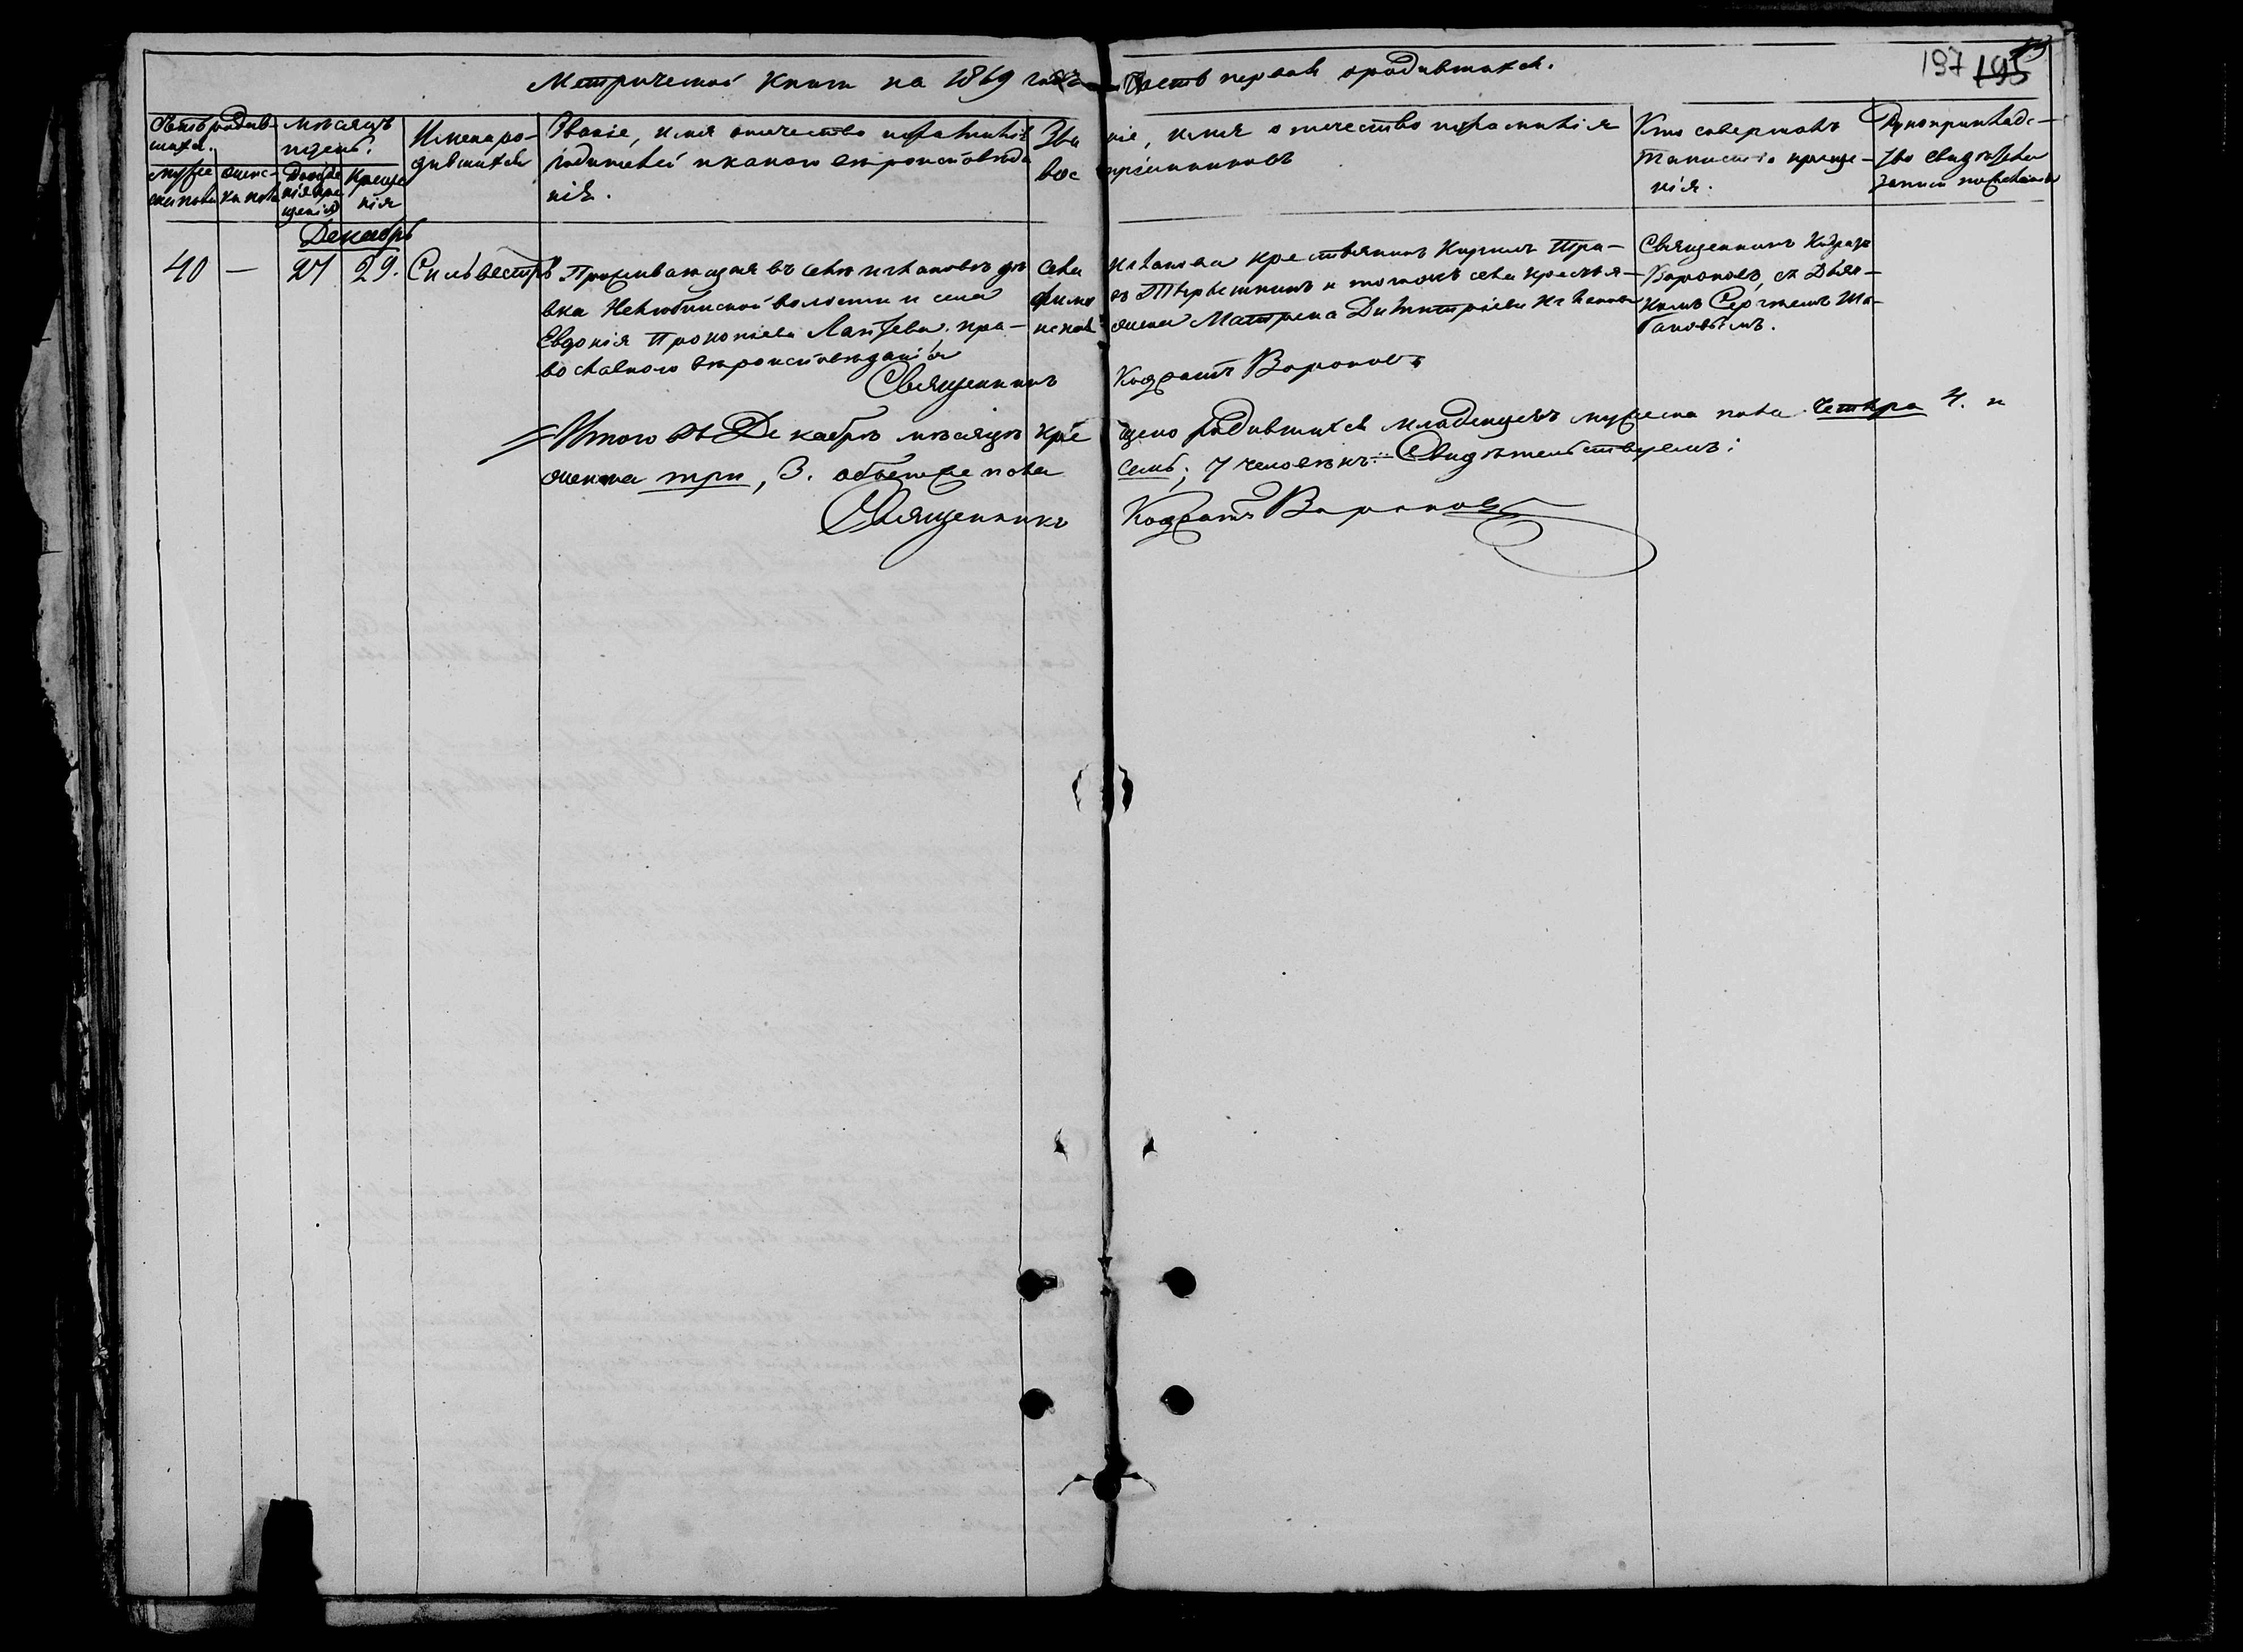 Метрической книги на 1869 годъ Часть первая о родившихся.
197 195
Счетъ родив-
шихся.
мѣсяцъ
и день.
Имена ро-
дившихся
Званіе, имя отечество и фамилія
родителей и какого вѣроисповѣда
нія.
Званіе, имя отечество и фамилія
воспріемниковъ
Кто совершалъ
таинство креще-
нія.
Рукоприкладс-
тво свидѣтелей
записи по желанію
муже
ска пола
женс-
ка пола
рожде
нія
креще
нія
Декабрь
40 — 27 29. Сильвестръ
Проживающая въ селѣ дѣ
вка волости и села
Евдокія Прокопіева Лаптева, пра-
вославнаго вѣроисповѣданія
села крестьянинъ Кирилъ Тро-
фимовъ и тогожъ села крестья-
нская жена Матрена Димитріева
Священникъ Кодратъ
Вороновъ, съ Дьяч-
комъ Сергѣемъ Ша-
бановымъ.
Священникъ Кодратъ Вороновъ
Итого въ Декабрѣ мѣсяцѣ крещено родившихся младенцевъ мужеска пола четыре 4. и
женска три, 3. обоего же пола семь; 7 человѣкъ. Свидѣтельствуемъ:
Священникъ Кодратъ Вороновъ